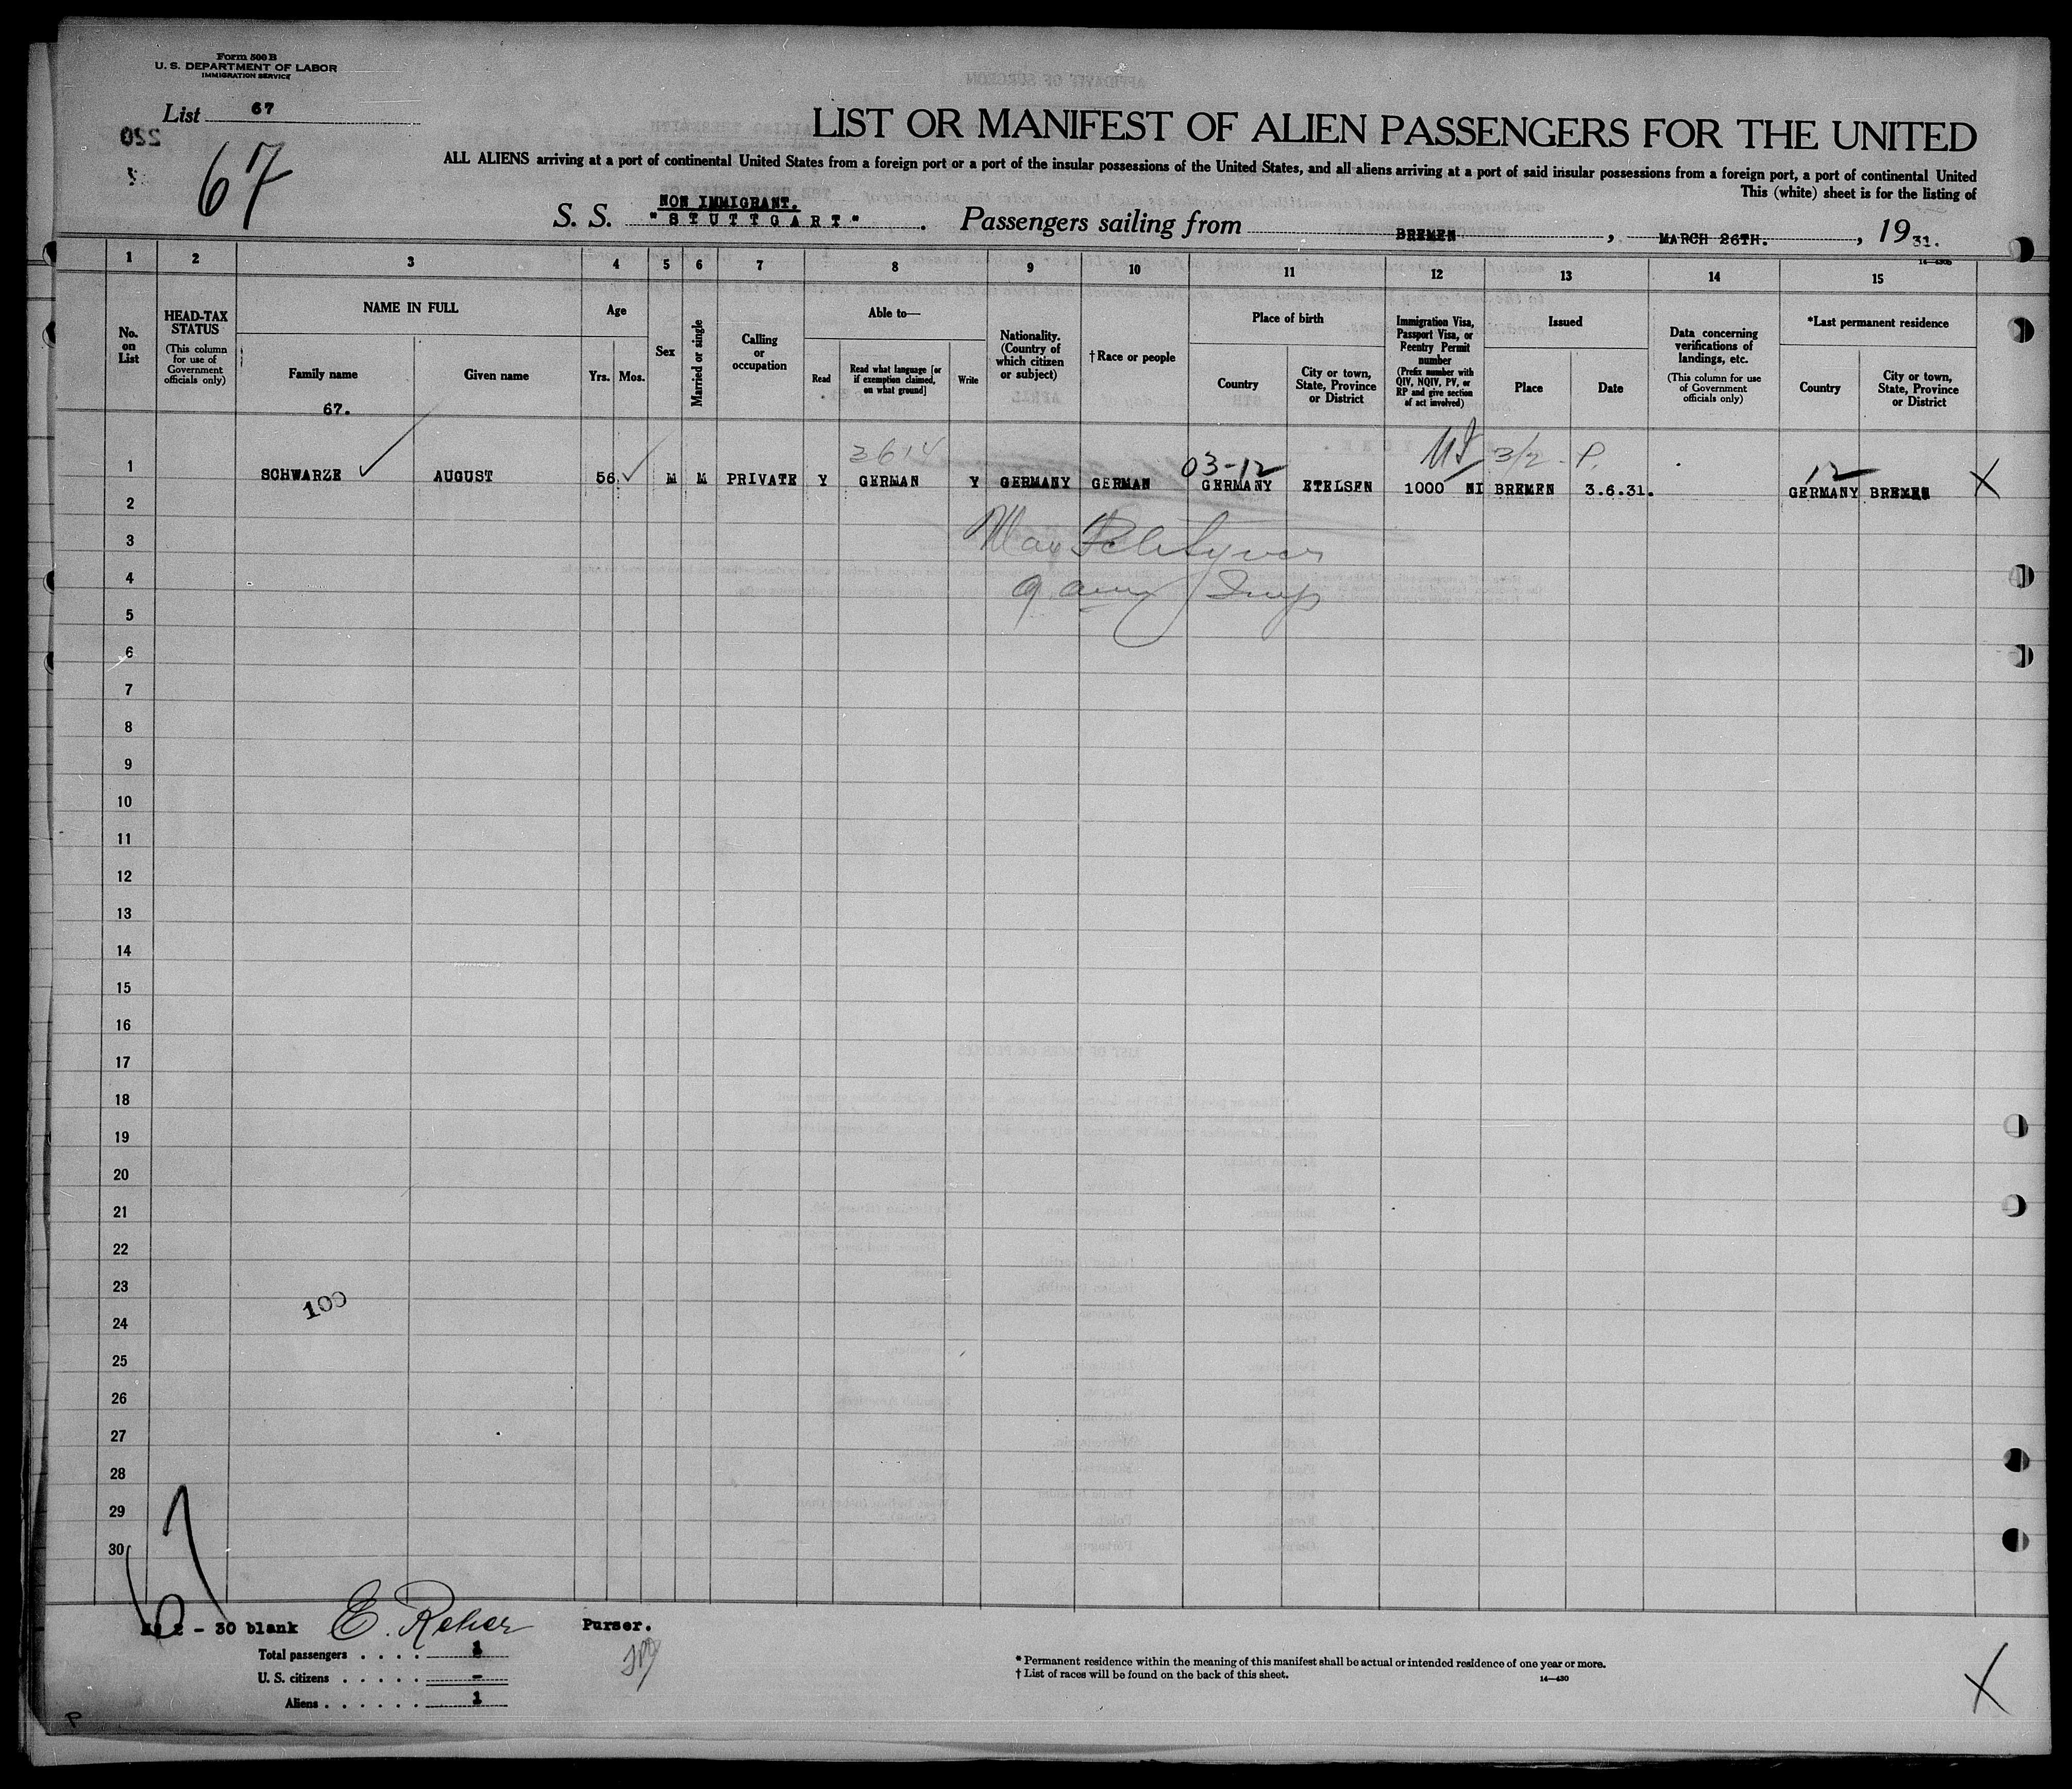 Form 500 B
U. S. DEPARTMENT OF LABOR
IMMIGRATION SERVICE
List 67
220
67
LIST OR MANIFEST OF ALIEN PASSENGERS FOR THE UNITED
ALL ALIENS arriving at a port of continental United States from a foreign port or a port of the insular possessions of the United States, and all aliens arriving at a port of said insular possessions from a foreign port, a port of continental United
This (white) sheet is for the listing of
NON IMMIGRANT.
S. S. "STUTTGART". Passengers sailing from BREMEN, MARCH 26TH., 1931.
14—430b
1 2 3 4 5 6 7 8 9 10 11 12 13 14 15
No. on List
HEAD-TAX STATUS
(This column for use of Government officials only)
NAME IN FULL
Family name
Given name
67.
Age
Yrs. Mos.
Sex
Married or single
Calling or occupation
Able to—
Read
Read what language [or if exemption claimed, on what ground]
Write
Nationality. (Country of which citizen or subject)
†Race or people
Place of birth
Country
City or town, State, Province or District
Immigration Visa, Passport Visa, or Reentry Permit number
(Prefix number with QIV, NQIV, PV, or RP and give section of act involved)
Issued
Place
Date
Data concerning verifications of landings, etc.
(This column for use of Government officials only)
*Last permanent residence
Country
City or town, State, Province or District
3614 03-12 3/2 - P. 12
1 SCHWARZE AUGUST 56 M M PRIVATE Y GERMAN Y GERMANY GERMAN GERMANY ETELSEN 1000 NI BREMEN 3.6.31. GERMANY BREMEN X
2
3 Max
4
5
6
7
8
9
10
11
12
13
14
15
16
17
18
19
20
21
22
23
100
24
25
26
27
28
29
30
67
2 - 30 blank E. Reher Purser.
Total passengers . . . . 1
U. S. citizens . . . . . -
Aliens . . . . . . 1
* Permanent residence within the meaning of this manifest shall be actual or intended residence of one year or more.
† List of races will be found on the back of this sheet.
14—430
X
P